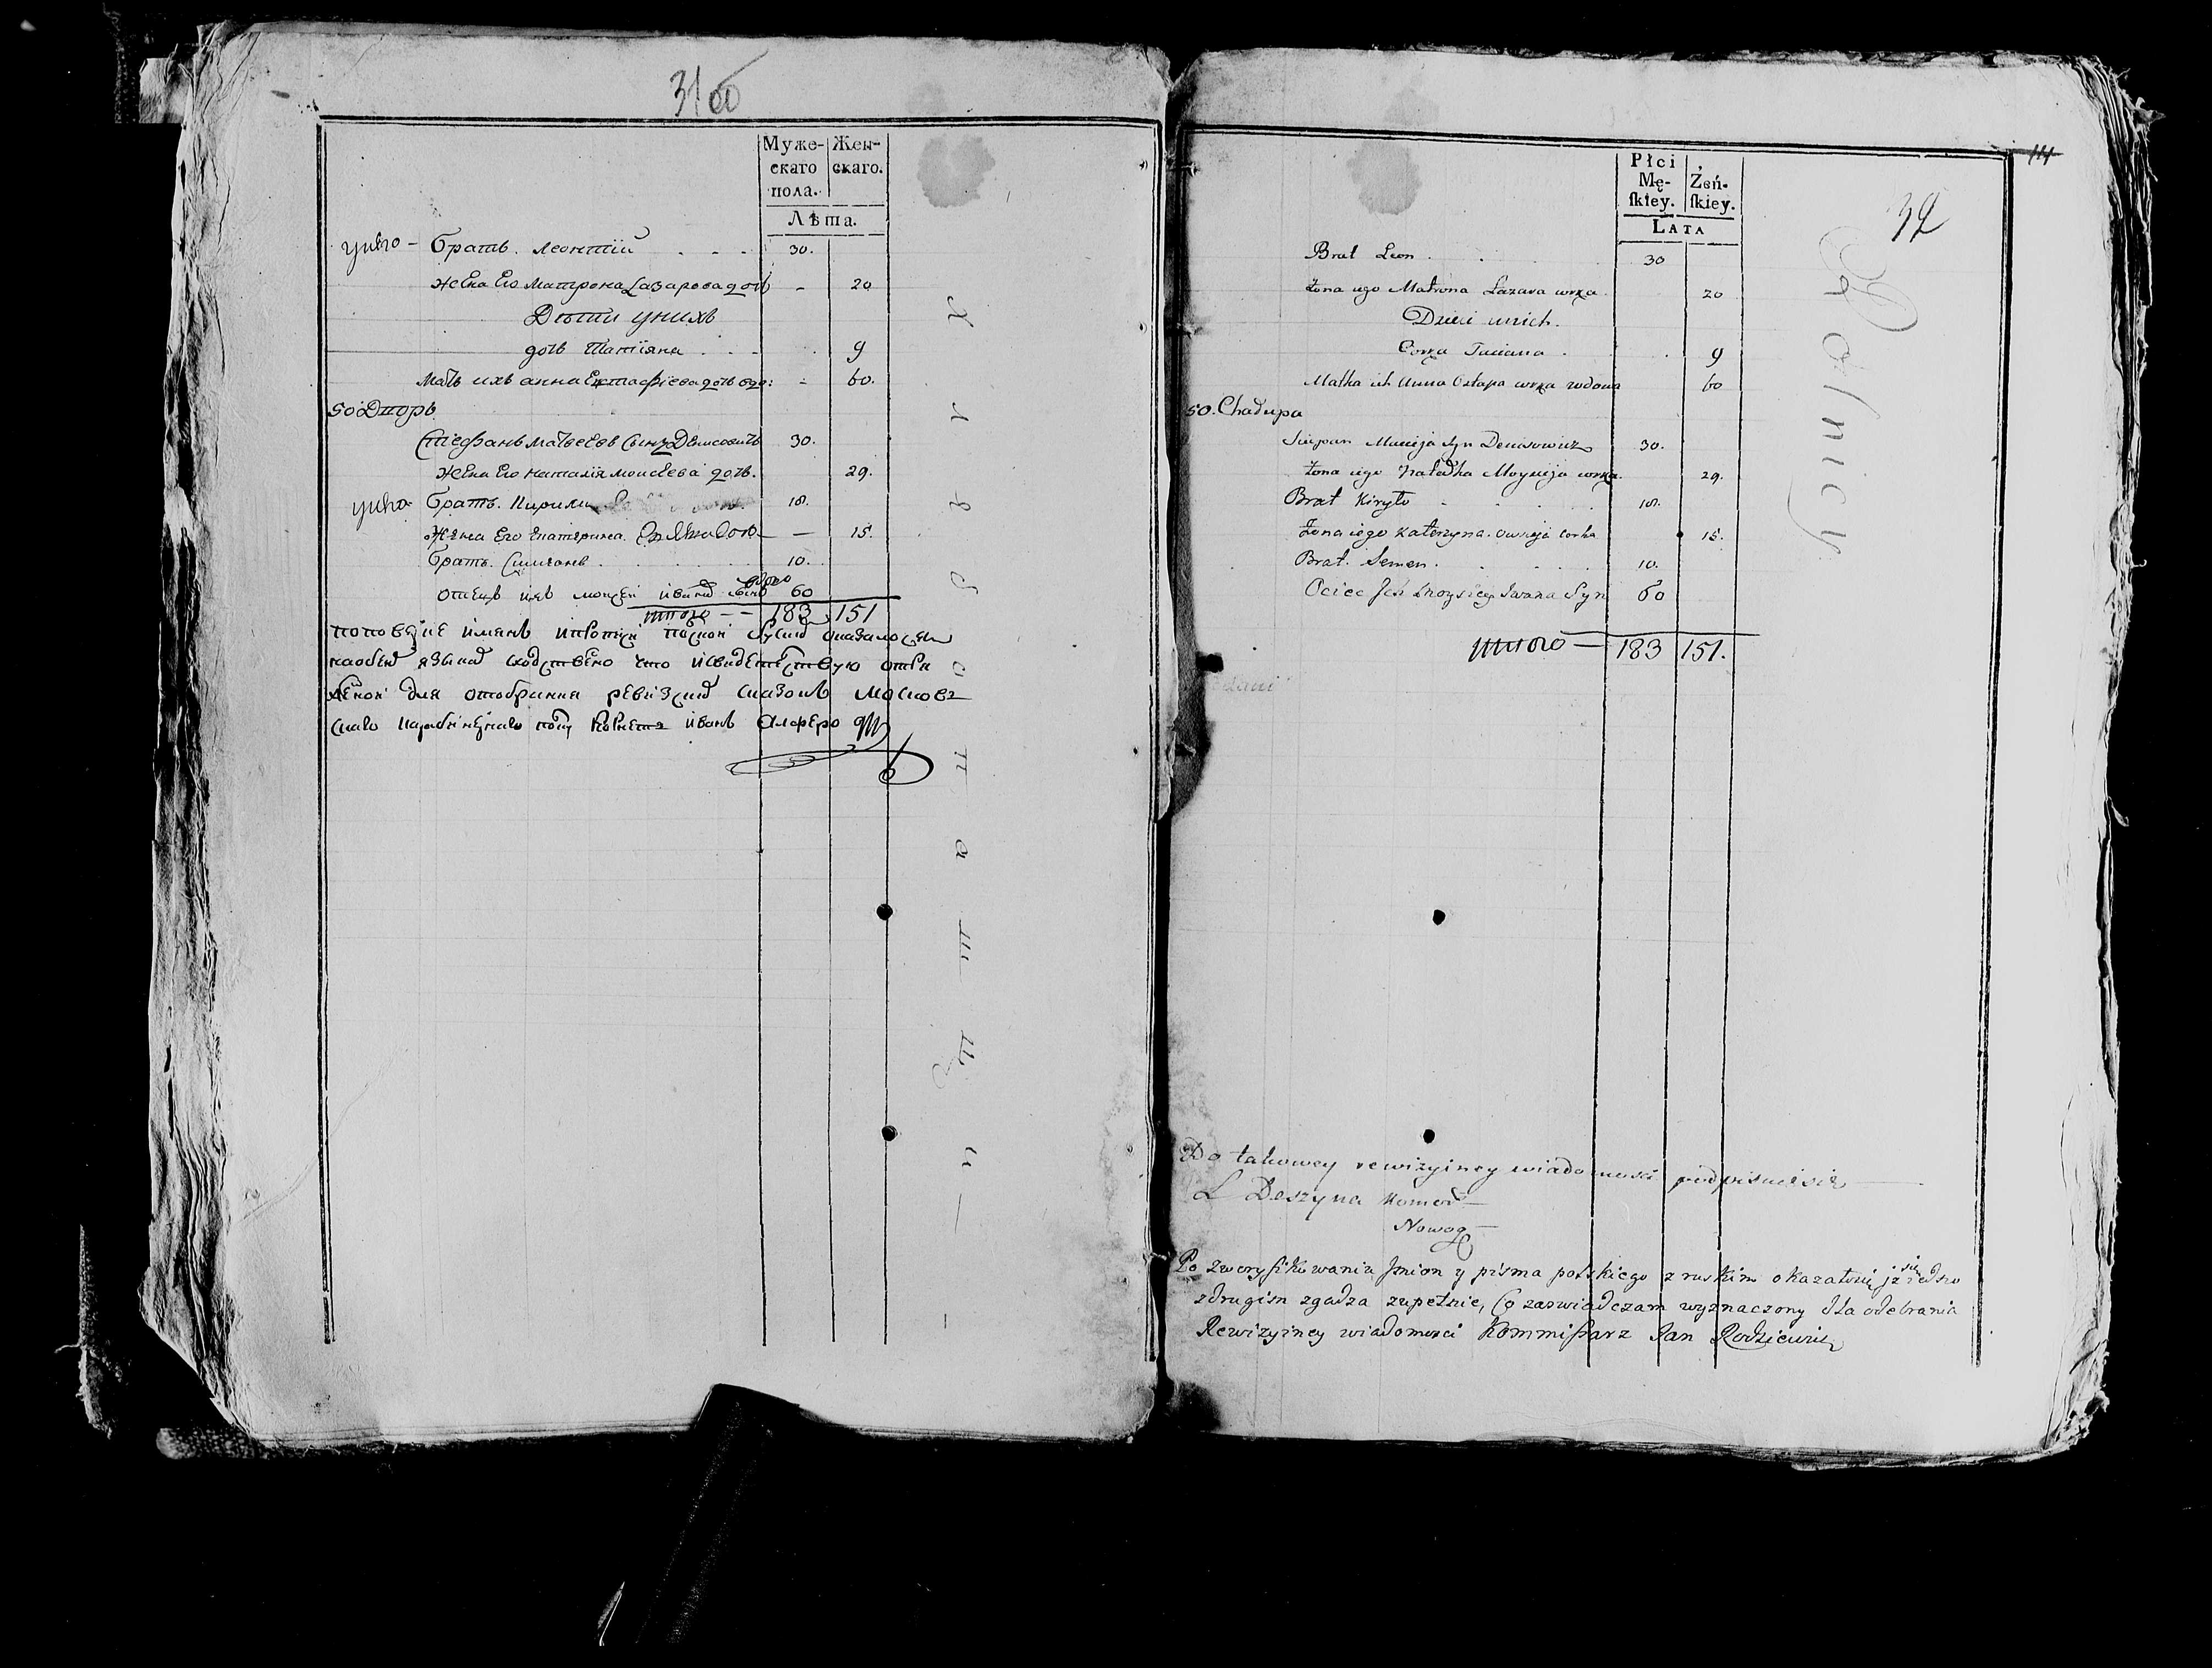 31 об
Муже-
скаго
пола.
Жен-
скаго.
Лѣта.
унего — братъ. Леонтій . . . 30.
жена Его матрона Лазарова дочь — 20
Дѣти унихъ
дочь Татіяна . . . 9
мать ихъ анна Евстафіева дочь вдо: — 60.
50 Дворъ
Стефанъ матвеевъ Сынъ Денисовичь 30.
жена Его наталія моисеева дочь. 29.
унего братъ. Кирила 18.
жена Его Екатерина дочь — 15.
братъ. Симіонъ . . . . . 10.
отецъ ихъ моисей ивана сынъ вдово 60
итого — — 183 151
имянъ
наобеихъ языкахъ сходственно что исвидетелствую
для отобрания ревизских сказокъ
иванъ
Х л я б о п а ш ц ы —
32
Płci
Mę-
ſkiey.
Żeń-
ſkiey.
LATA
Brat Leon . . . 30
żona iego Matrona Lazara corka 20
Dzieci unich.
Corka Taciana . . 9
Matka ich Anna Ostapa corka wdowa 60
50. Chałupa
Sciepan Macieja Syn Denisowicz 30.
żona iego Natalka Moysieja corka 29.
Brat Kiryło . . . . 18.
żona iego Katerzyna. corka 15.
Brat. Semen. . . . . 10.
Ociec Ich Moysiey Iwana Syn 60
итого — 183 151.
Rolnicy
Do takowey rewizyiney wiadomości podpisuie się —
L Deszyna Komor —
Nowog —
Po zweryfikowaniu Imion y pisma polskiego z ruskim okazało się iż iedno
z drugim zgadza się zupełnie, Co zaswiadczam wyznaczony dla odebrania
Rewizyiney wiadomosci Kommiſsarz Jan Rodziewicz